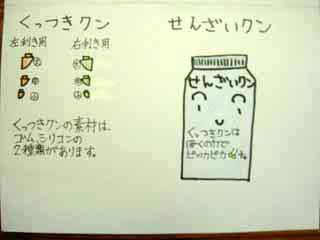 くっつきクン
左利き用 右利き用
大 大
中 中
小 小
くっつきクンの素材は、
ゴム、シリコンの
2種類があります。
せんざいクン
せんざいクン
くっつきクンは
ピッカピカ